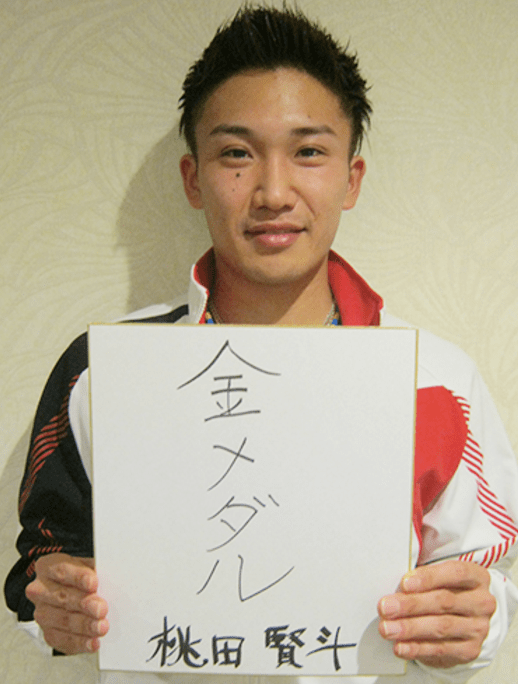 金メダル
桃田賢斗